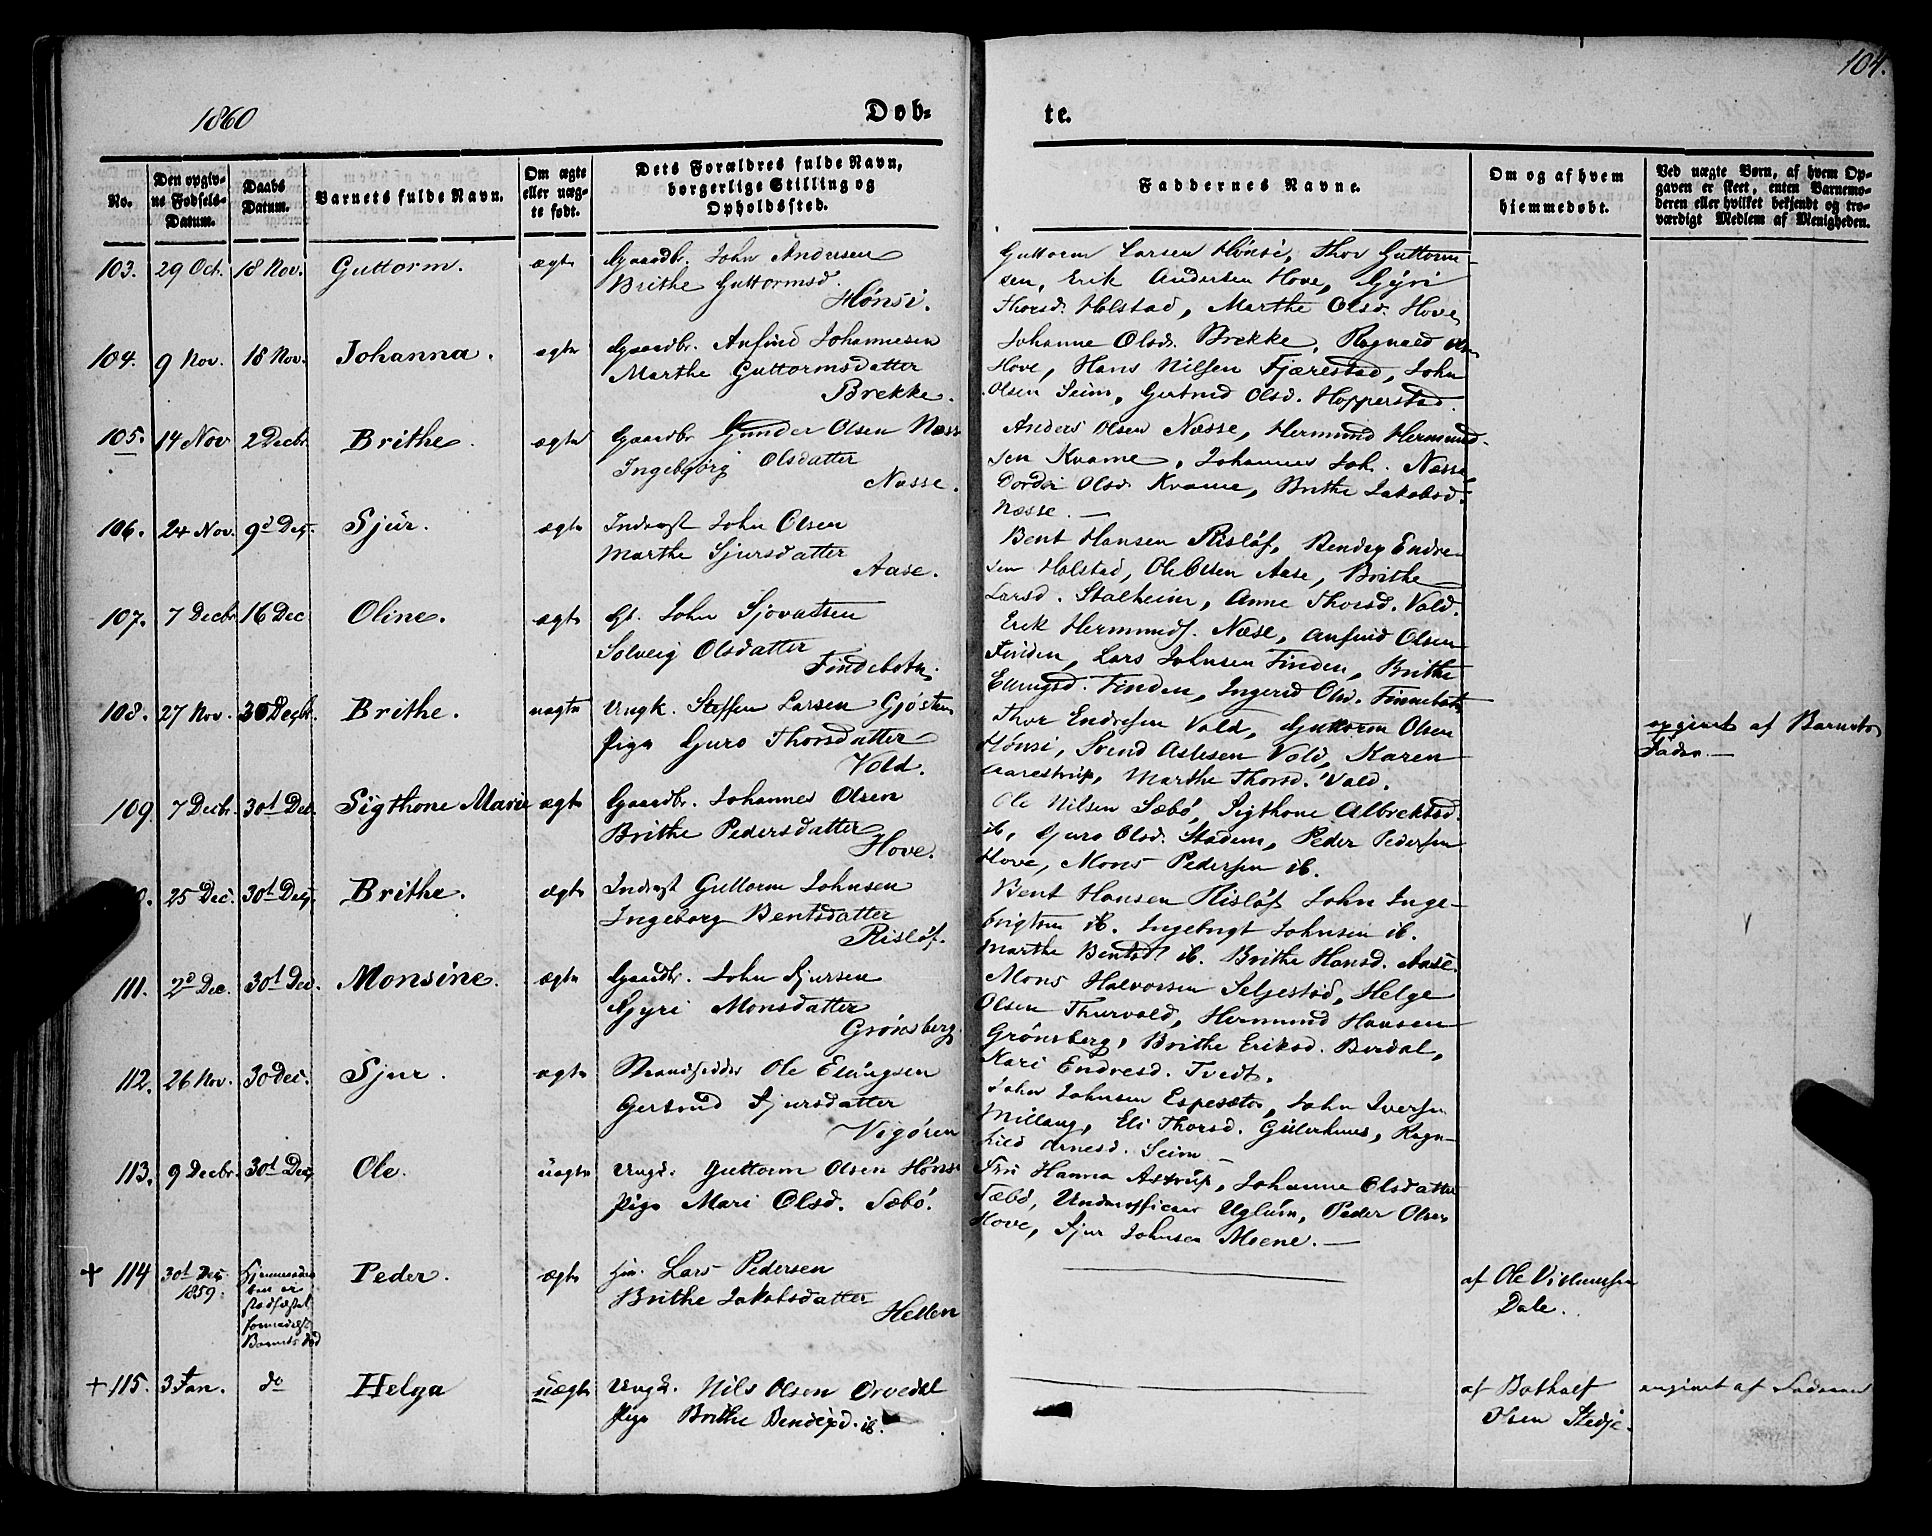 104.
1860
Døb-
te.
No.
Den opgiv-
ne Fødsels-
Datum.
Daabs
Datum.
Barnets fulde Navn.
Om ægte
eller uæg-
te født.
Dets Forældres fulde Navn,
borgerlige Stilling og
Opholdssted.
Faddernes Navne.
Om og af hvem
hjemmedøbt.
Ved uægte Børn, af hvem Op-
gaven er skeet, enten Barnemo-
deren eller hvilket bekjendt og tro-
værdigt Medlem af Menigheden.
103. 29 Oct. 18 Nov. Guttorm. ægte Gaardbr. John Andersen
Brithe Guttormsd.
Hønsi.
Guttorm Larsen Hønsi, Thor Guttorm-
sen, Erik Andersen Hove, Gyri
Thorsd. Holstad, Marthe Olsd. Hove
104. 9 Nov. 18 Nov. Johanna. ægte Gaardbr. Anfind Johannesen
Marthe Guttormsdatter
Brekke.
Johanne Olsd. Brekke, Ragnald Olsen
Hove, Hans Nilsen Fjærestad, John
Olsen Seim, Gertrud Olsd. Hopperstad.
105. 14 Nov 2 Decbr Brithe. ægte Gaardbr Gunder Olsen Næsse
Ingebjørg Olsdatter
Næsse.
Anders Olsen Næsse, Hermund Hermund-
sen Kvame, Johannes Joh. Næsse,
Dordei Olsd. Kvame, Brithe Jakobsd.
Næsse.
106. 24 Nov. 9d Dec. Sjur. ægte Inderst John Olsen
Marthe Sjursdatter
Aase.
Bent Hansen Risløf, Bendix Endre-
sen Holstad, Ole Olsen Aase, Brithe
Larsd. Stalheim, Anne Thorsd. Vold.
107. 7 Decbr 16 Dec Oline. ægte Gb. John Sjovatsen
Solveig Olsdatter
Findebotn.
Erik Hermunds. Næse, Anfind Olsen
Finden, Lars Johnsen Finden, Brithe
Ellingsd. Finden, Ingerid Olsd. Finnebotn
108. 27 Nov. 30 Decbr. Brithe. uægte Ungk. Steffen Larsen Gjøsten
Pige Guro Thorsdatter
Vold.
Thor Endresen Vold, Guttorm Olsen
Hønsi, Svend Aslesen Vold, Karen
Aarestrup, Marthe Thorsd. Vald.
opgivet af Barnets
Fader.
109. 7 Decbr. 30t Deb. Sigthone Marie ægte Gaardbr. Johannes Olsen
Brithe Pedersdatter
Hove.
Ole Nilsen Sæbø, Sigthone Albrektsd.
ib, Guro Olsd. Stadem, Peder Pedersen
Hove, Mons Pedersen ib.
0. 25 Dec. 30t Dec. Brithe. ægte Inderst Guttorm Johnsen
Ingeborg Bentsdatter
Risløf.
Bent Hansen Risløf John Inge-
brigtsen ib. Ingebrigt Johnsen ib.
Marthe Bentsd. ib. Brithe Hansd. Aase.
111. 2d Dec. 30t Dec. Monsine. ægte Gaardbr. John Sjursen
Gyri Monsdatter
Grønsberg.
Mons Halvorsen Seljestad, Helge
Olsen Thurvald, Hermund Hansen
Grønsberg, Brithe Eriksd. Berdal,
Kari Endresd. Tvedt.
112. 26 Nov. 30 Dec. Sjur. ægte Strandsidder Ole Ellingsen
Gertrud Sjursdatter
Vigøren
John Johnsen Espesæter, John Iversen
Millang, Eli Thorsd. Gullerhuus, Ragn-
hild Arnesd. Seim
113. 9 Decbr. 30t Dec. Ole. uægte Ungk. Guttorm Olsen Hønsi
Pige Mari Olsd. Sæbø.
Fru Hanna Astrup, Johanne Olsdatter
Sæbø, Underofficeer Uglum, Peder Olsen
Hove, Sjur Johnsen Moene.
+ 114 30t Dec. 1859. Hjemmedaa-
ben er
stadfæstet
formedelst
Barnets død Peder. ægte Lars Pedersen
Brithe Jakobsdatter
Hellen
af Ole Villumsen
Dale.
+ 115. 3 Jan. do Helga uægte Ungk. Nils Olsen Orvedal
Pige Brithe Bendixd. ib.
af Botholf
Olsen Stedje.
angivet af Faderen